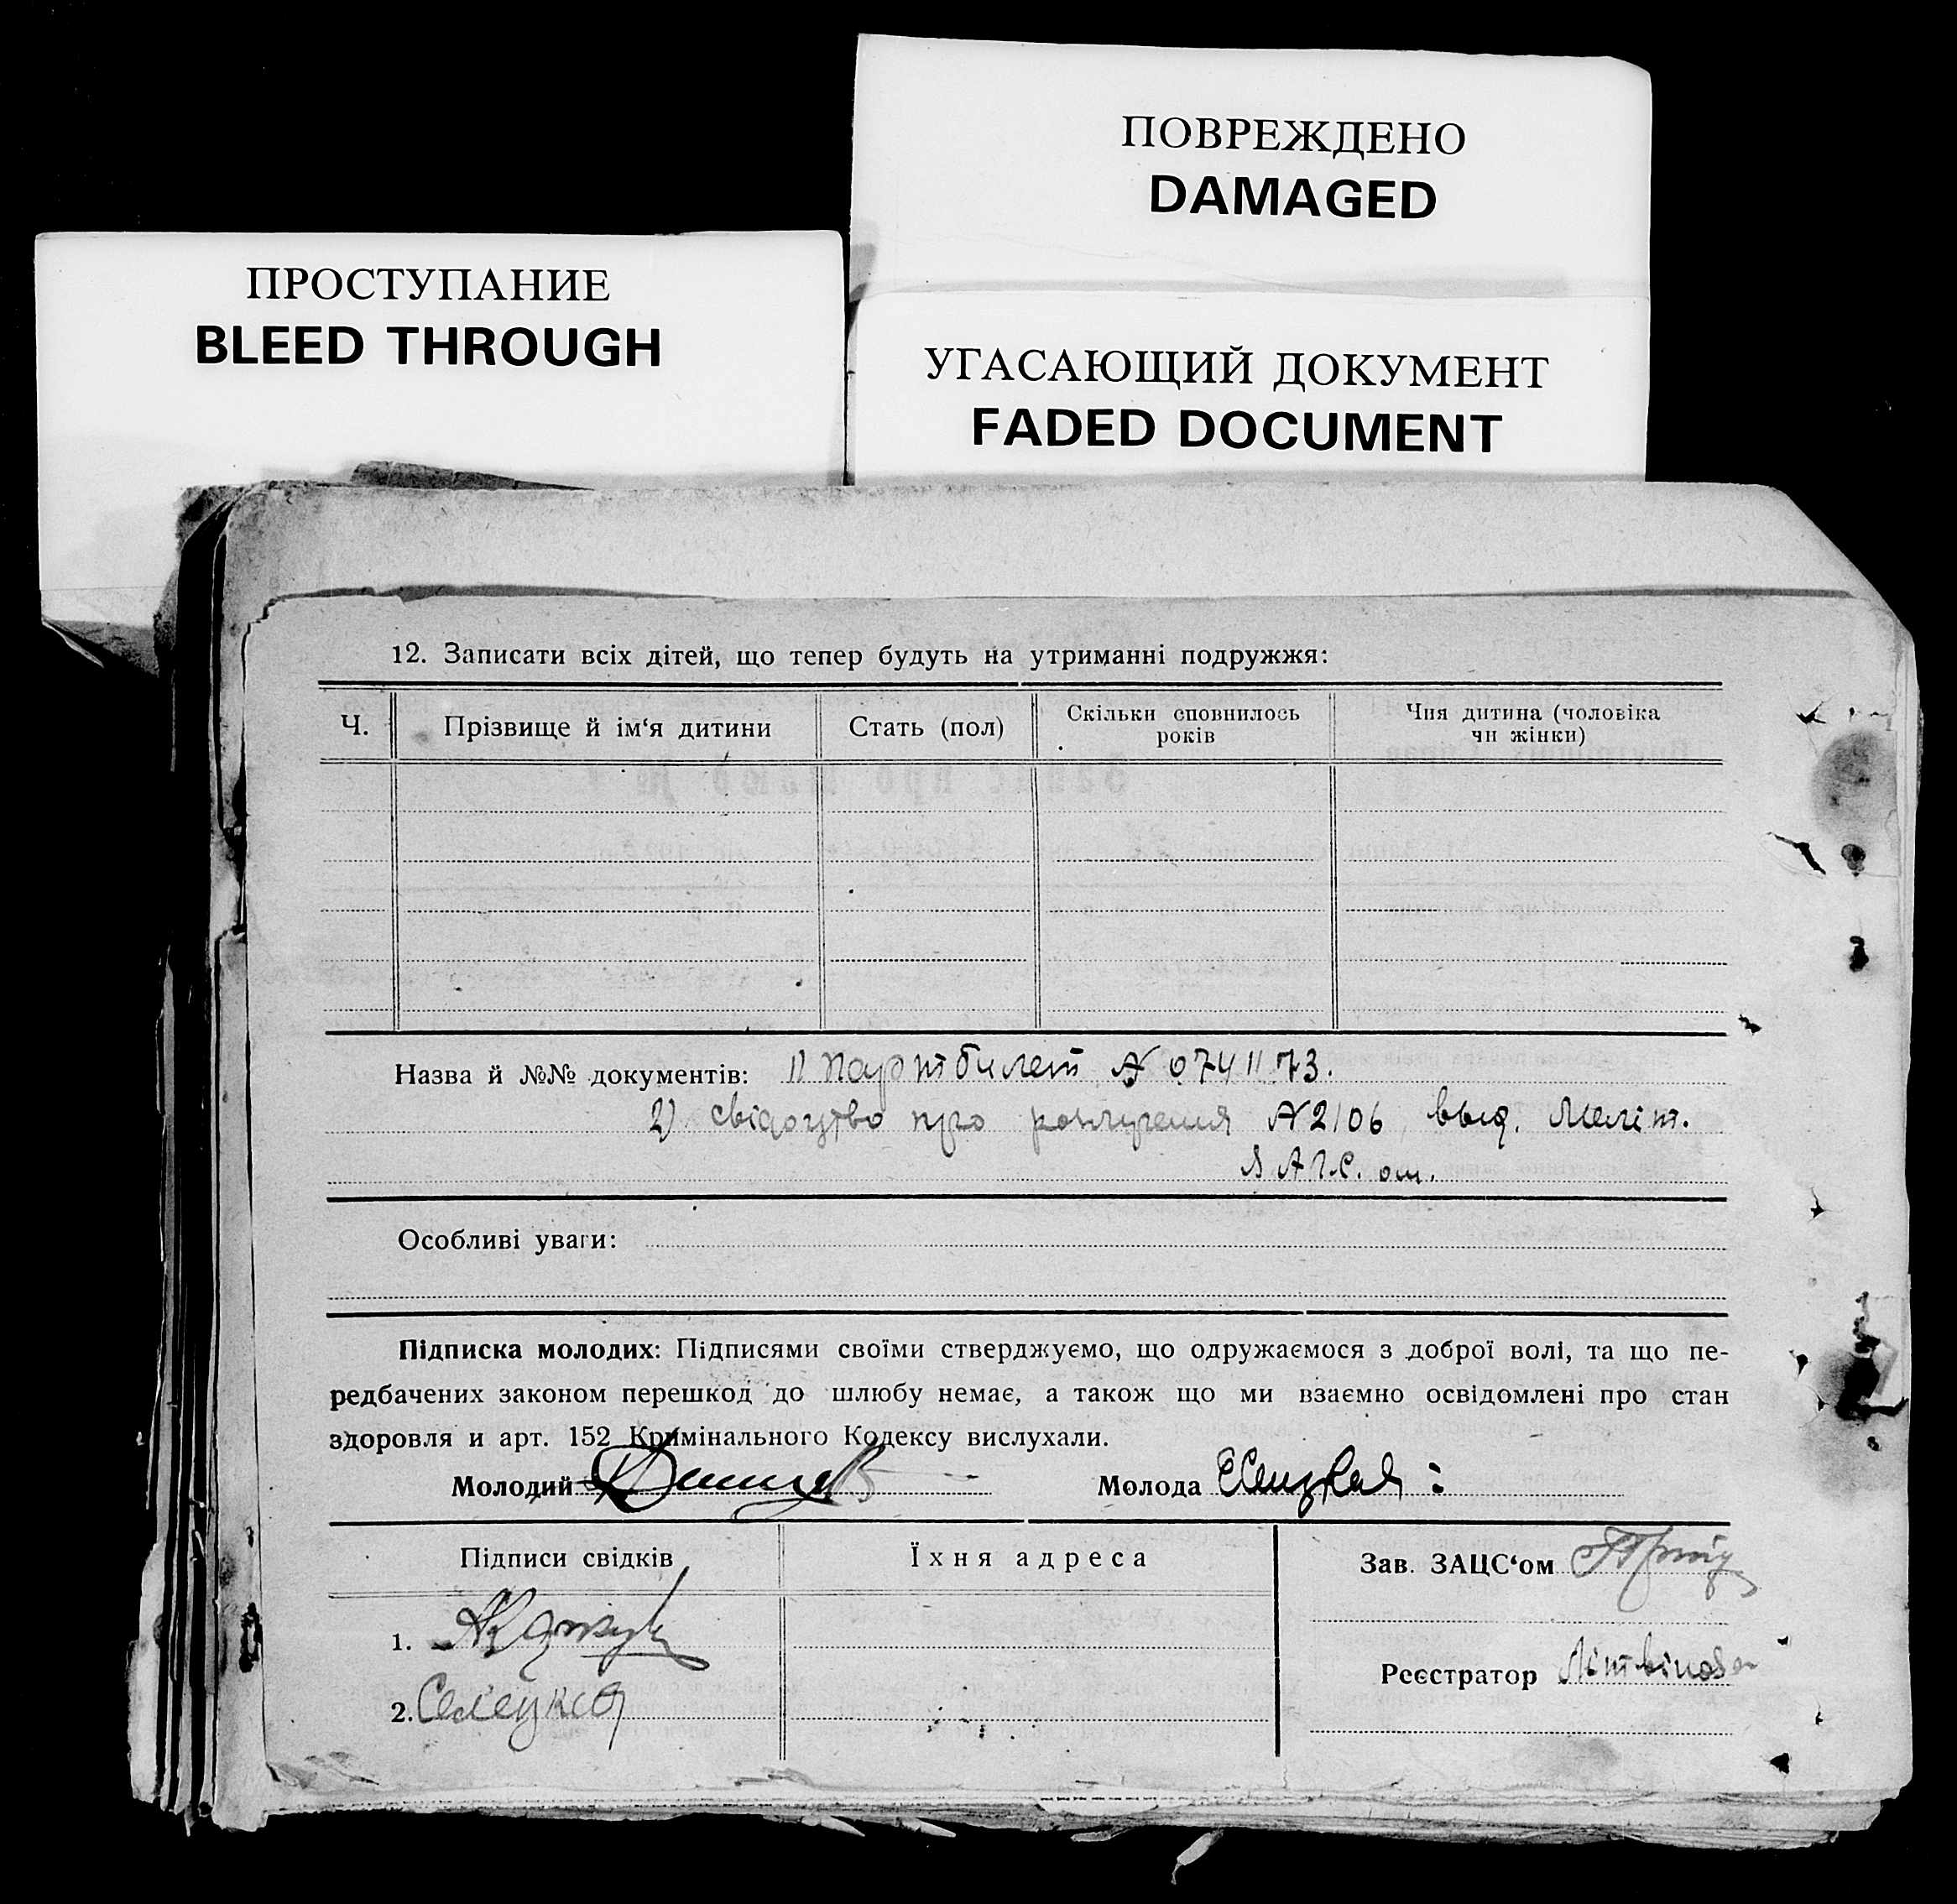 ПОВРЕЖДЕНО
DAMAGED
ПРОСТУПАНИЕ
BLEED THROUGH
УГАСАЮЩИЙ ДОКУМЕНТ
FADED DOCUMENT
12. Записати всіх дітей, що тепер будуть на утриманні подружжя:
Ч.
Прізвище й ім‘я дитини
Стать (пол)
Скільки сповнилось
років
Чия дитина (чоловіка
чи жінки)
Назва й №№ документів: 1) партбилет № 0741173.
2) свідоцтво про розлучення №2106 выд. Меліт.
ЗАГС. ом.
Особливі уваги:
Підписка молодих: Підписями своїми стверджуємо, що одружаємося з доброї волі, та що пе-
редбачених законом перешкод до шлюбу немає, а також що ми взаємно освідомлені про стан
здоровля и арт. 152 Кримінального Кодексу вислухали.
Молодий
Молода
Підписи свідків
Їхня адреса
Зав. ЗАЦС‘ом
1.
Реєстратор Літвінова
2. Селецкая